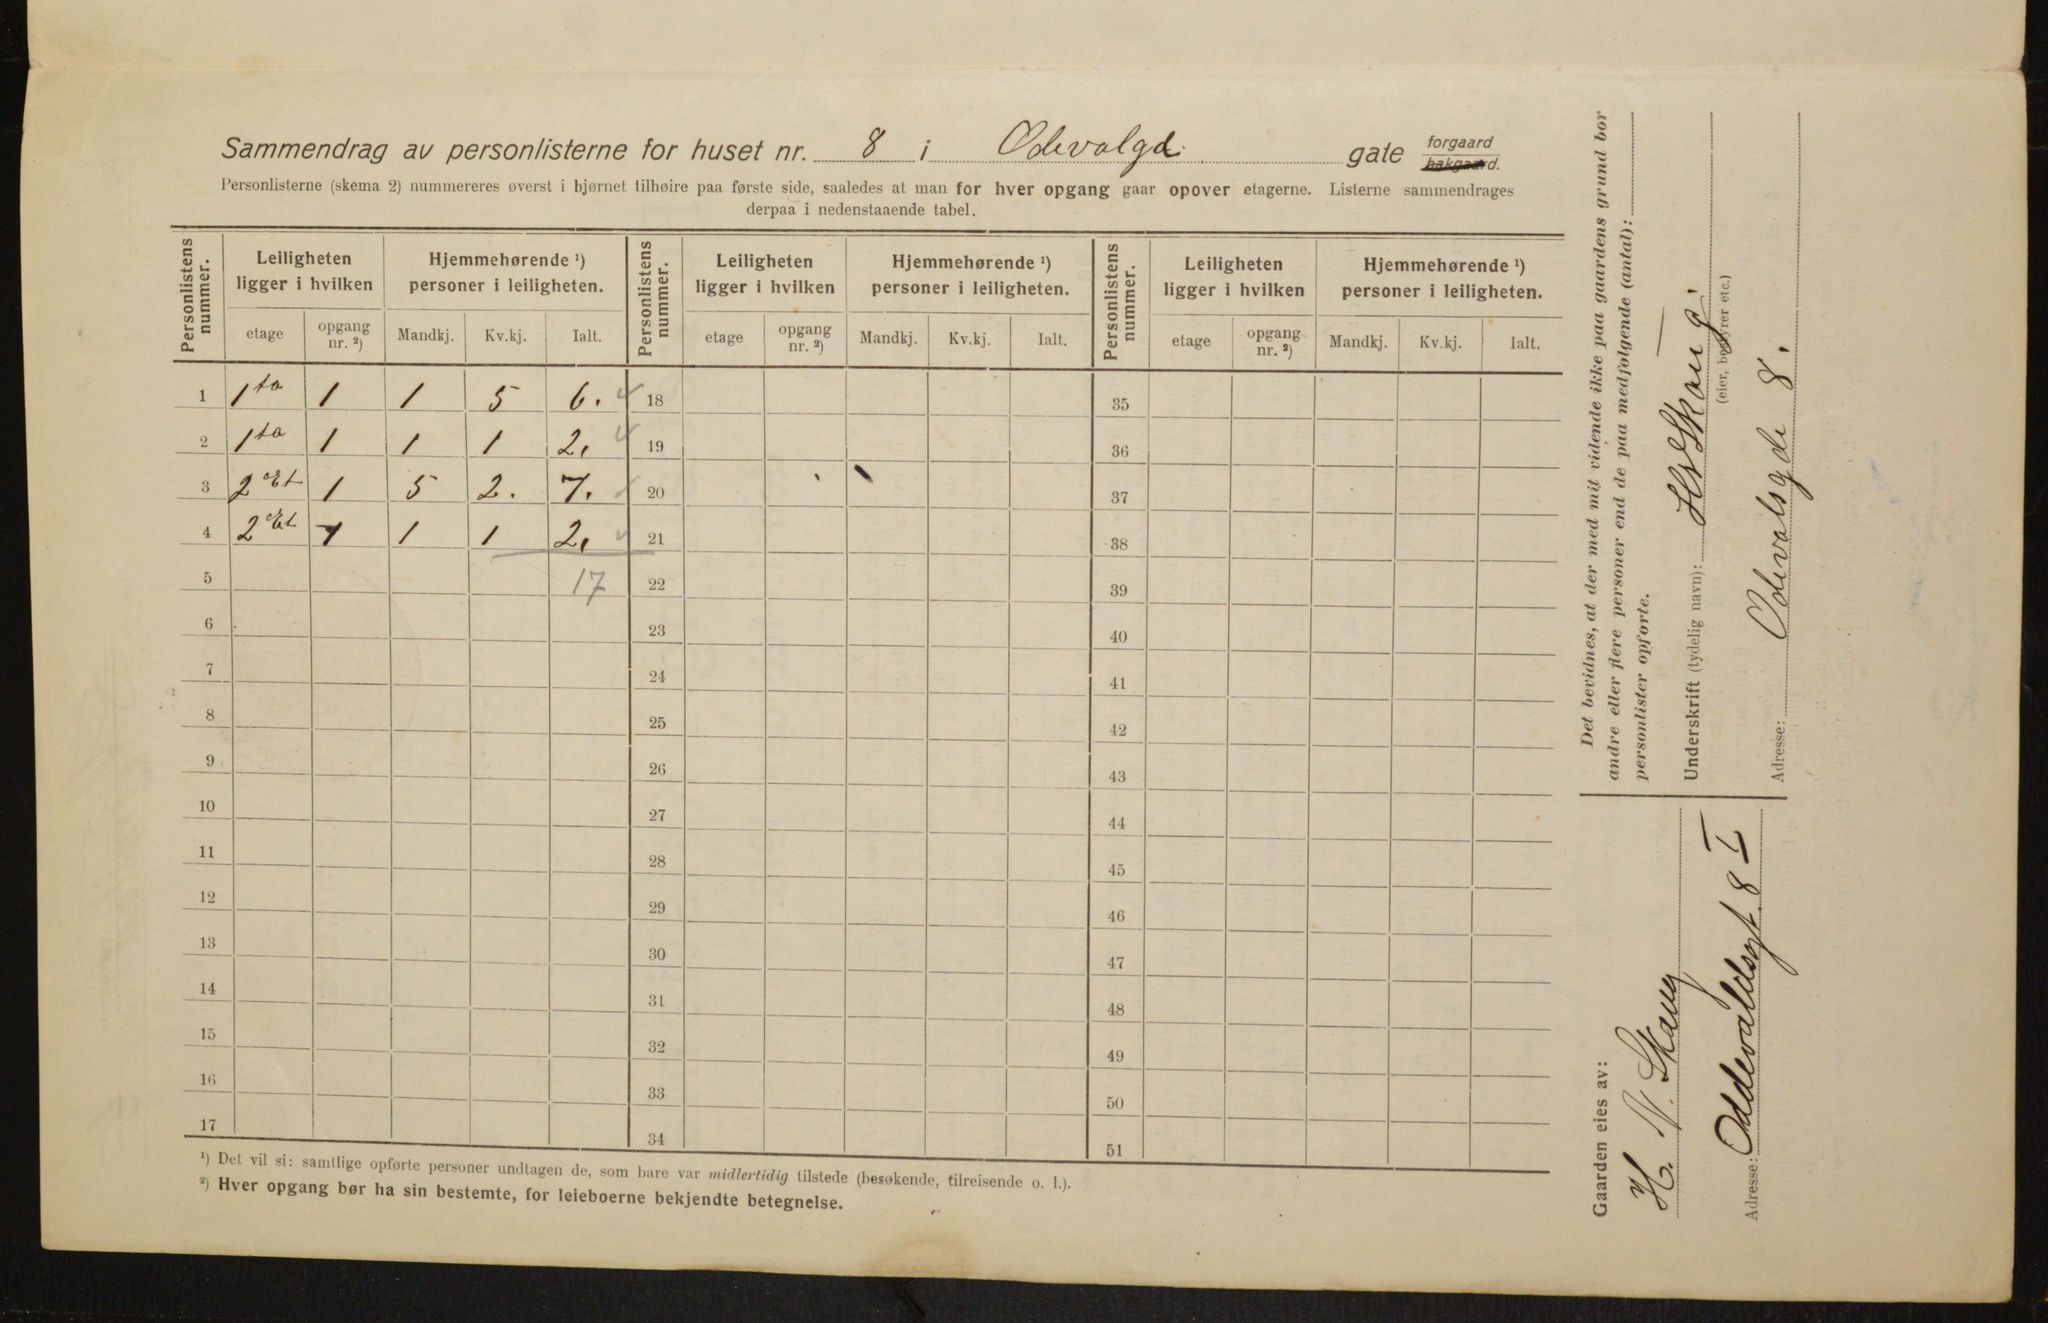 Sammendrag av personlisterne for huset nr. 8 i Odevalgd. gate forgaard bakgaard.
Personlisterne (skema 2) nummereres øverst i hjørnet tilhøire paa første side, saaledes at man for hver opgang gaar opover etagerne. Listerne sammendrages
derpaa i nedenstaaende tabel.
Personlistens nummer. Leiligheten ligger i hvilken Hjemmehørende ¹) personer i leiligheten. Personlistens nummer. Leiligheten ligger i hvilken Hjemmehørende ¹) personer i leiligheten. Personlistens nummer. Leiligheten ligger i hvilken Hjemmehørende ¹) personer i leiligheten.
etage opgang nr. ²) Mandkj. Kv.kj. Ialt. etage opgang nr. ²) Mandkj. Kv.kj. Ialt. etage opgang nr. ²) Mandkj. Kv.kj. Ialt.
1 1ta 1 1 5 6. 18 35
2 1ta 1 1 1 2. 19 36
3 2 Et 1 5 2. 7. 20 37
4 2 Et 1 1 1 2. 21 38
5 17 22 39
6 23 40
7 24 41
8 25 42
9 26 43
10 27 44
11 28 45
12 29 46
13 30 47
14 31 48
15 32 49
16 33 50
17 34 51
¹) Det vil si: samtlige opførte personer undtagen de, som bare var midlertidig tilstede (besøkende, tilreisende o. l.).
²) Hver opgang bør ha sin bestemte, for leieboerne bekjendte betegnelse.
Det bevidnes, at der med mit vidende ikke paa gaardens grund bor
andre eller flere personer end de paa medfølgende (antal):
personlister opførte.
Underskrift (tydelig navn): Skaug
(eier, bestyrer etc.)
Adresse: Odevalsgde 8.
Gaarden eies av:
H. N. Skaug
Adresse: Oddevaldsgt. 8 I